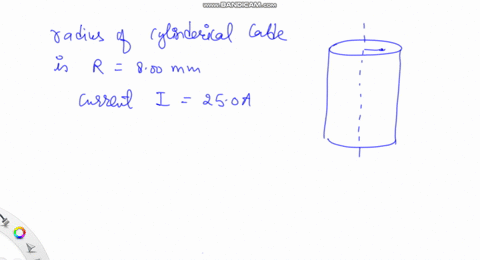 www.BANDICAM.com
radius of cylinderical Cable
is R = 8.00 mm
Current I = 25.0A